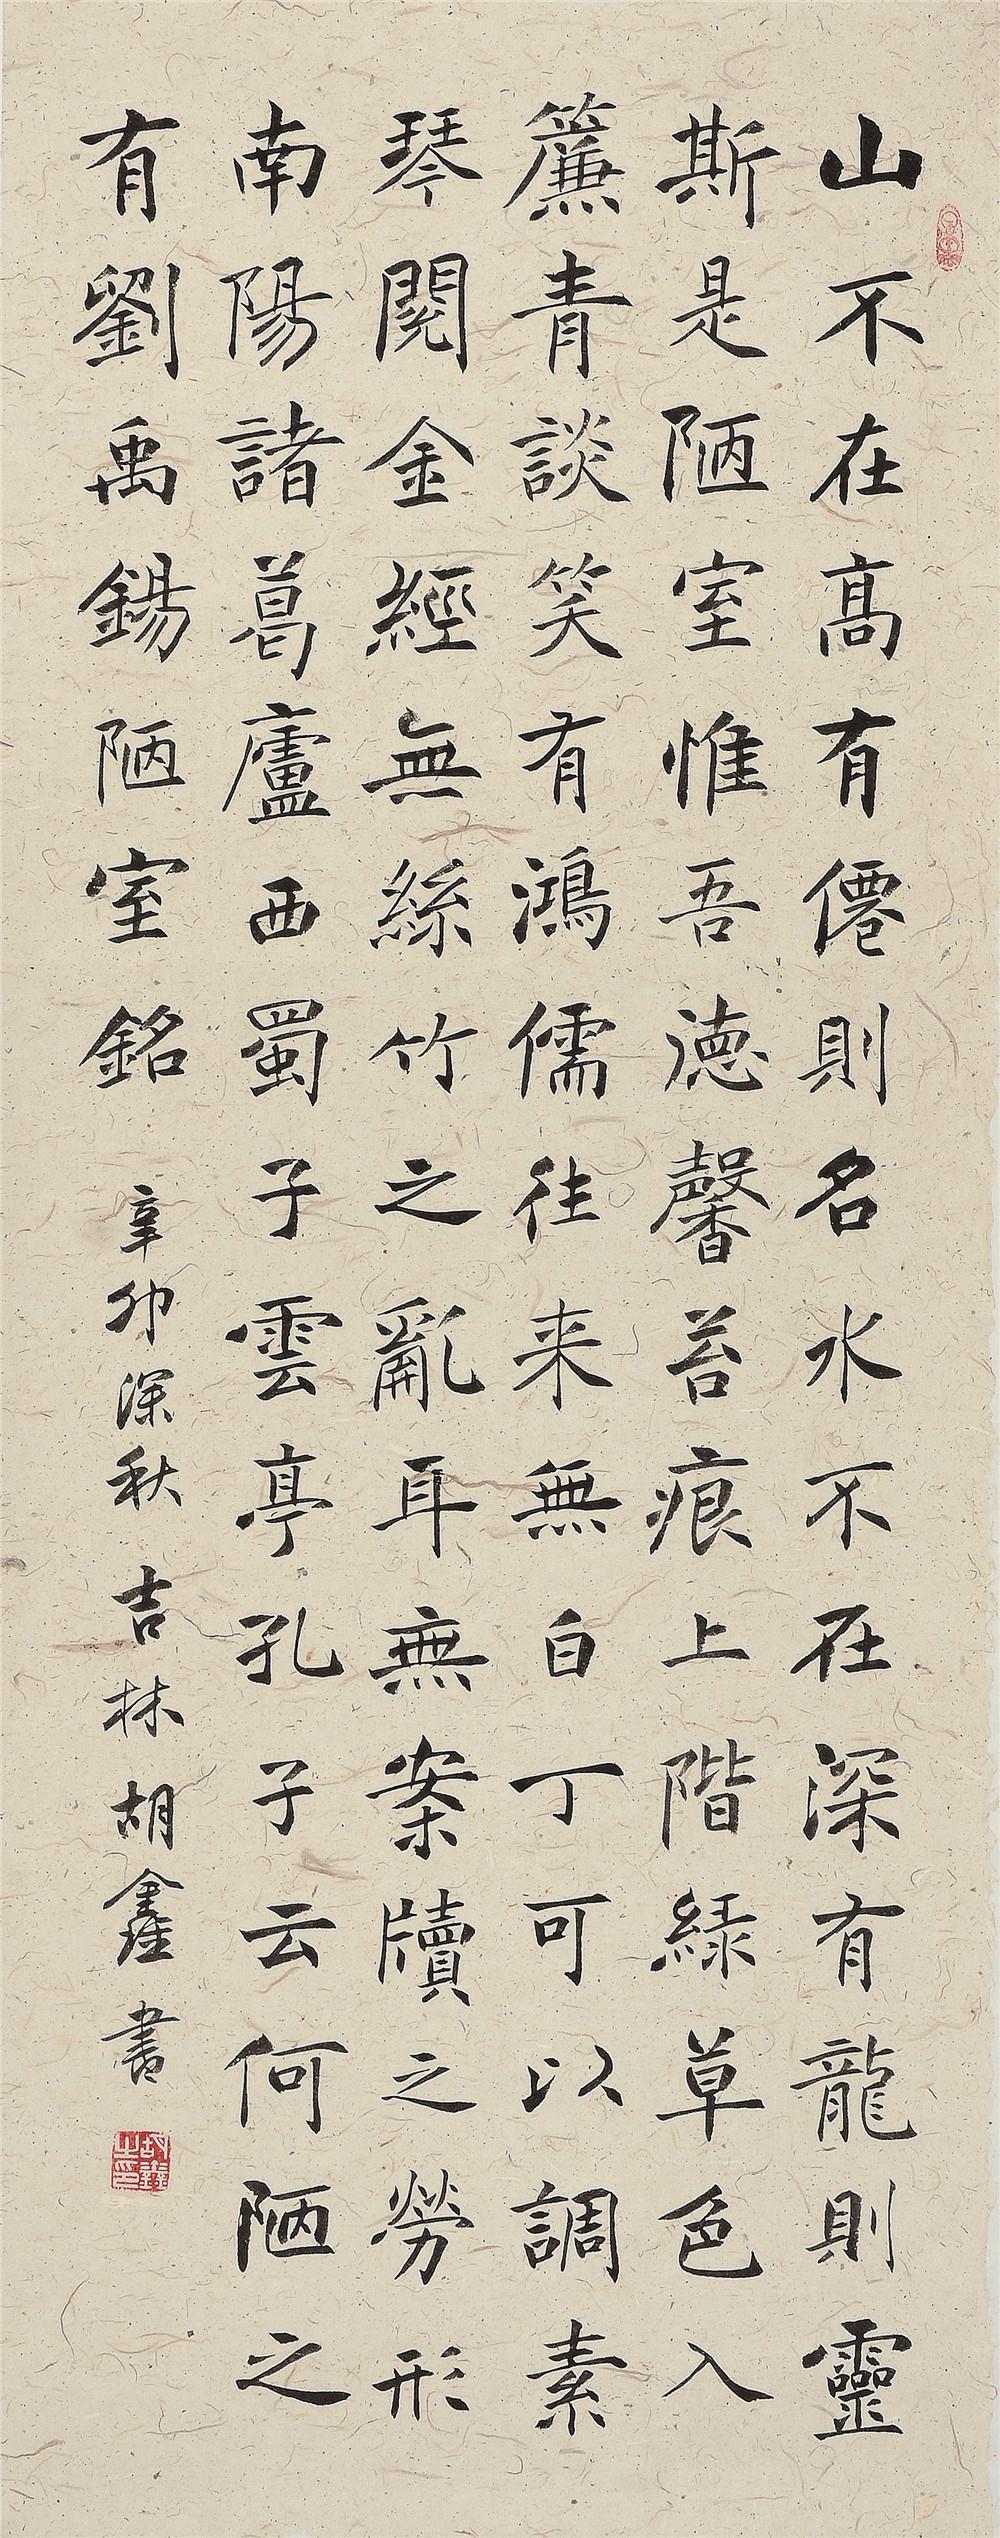 山不在高有僊則名水不在深有龍則靈
斯是陋室惟吾德馨苔痕上階緑草色入
簾青談笑有鴻儒往来無白丁可以調素
琴閱金經無絲竹之亂耳無案牘之勞形
南陽諸葛廬西蜀子雲亭孔子云何陋之
有劉禹錫陋室銘 辛卯深秋 吉林胡鑫書
胡鑫之印